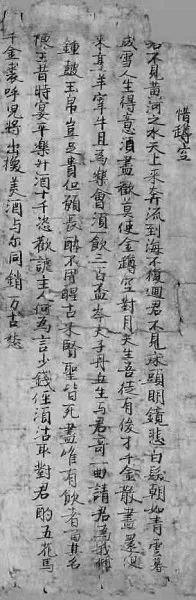 惜罇空
君不見黃河之水天上來奔流到海不復迴君不見床頭明鏡悲白髮朝如青雲暮
成雪人生得意須盡歡莫使金罇空對月天生吾徒有俊才千金散盡還復
來烹羊宰牛且為樂會須一飲三百盃岑夫子丹丘生与君哥一曲請君為我傾
鍾皷玉帛豈足貴但願長醉不用醒古來賢聖皆死盡唯有飲者留其名
陳王昔時宴平樂斗酒十千恣歡謔主人何為言少錢徑須沽取對君酌五花馬
千金裘呼兒將出換美酒与尓同銷万古愁